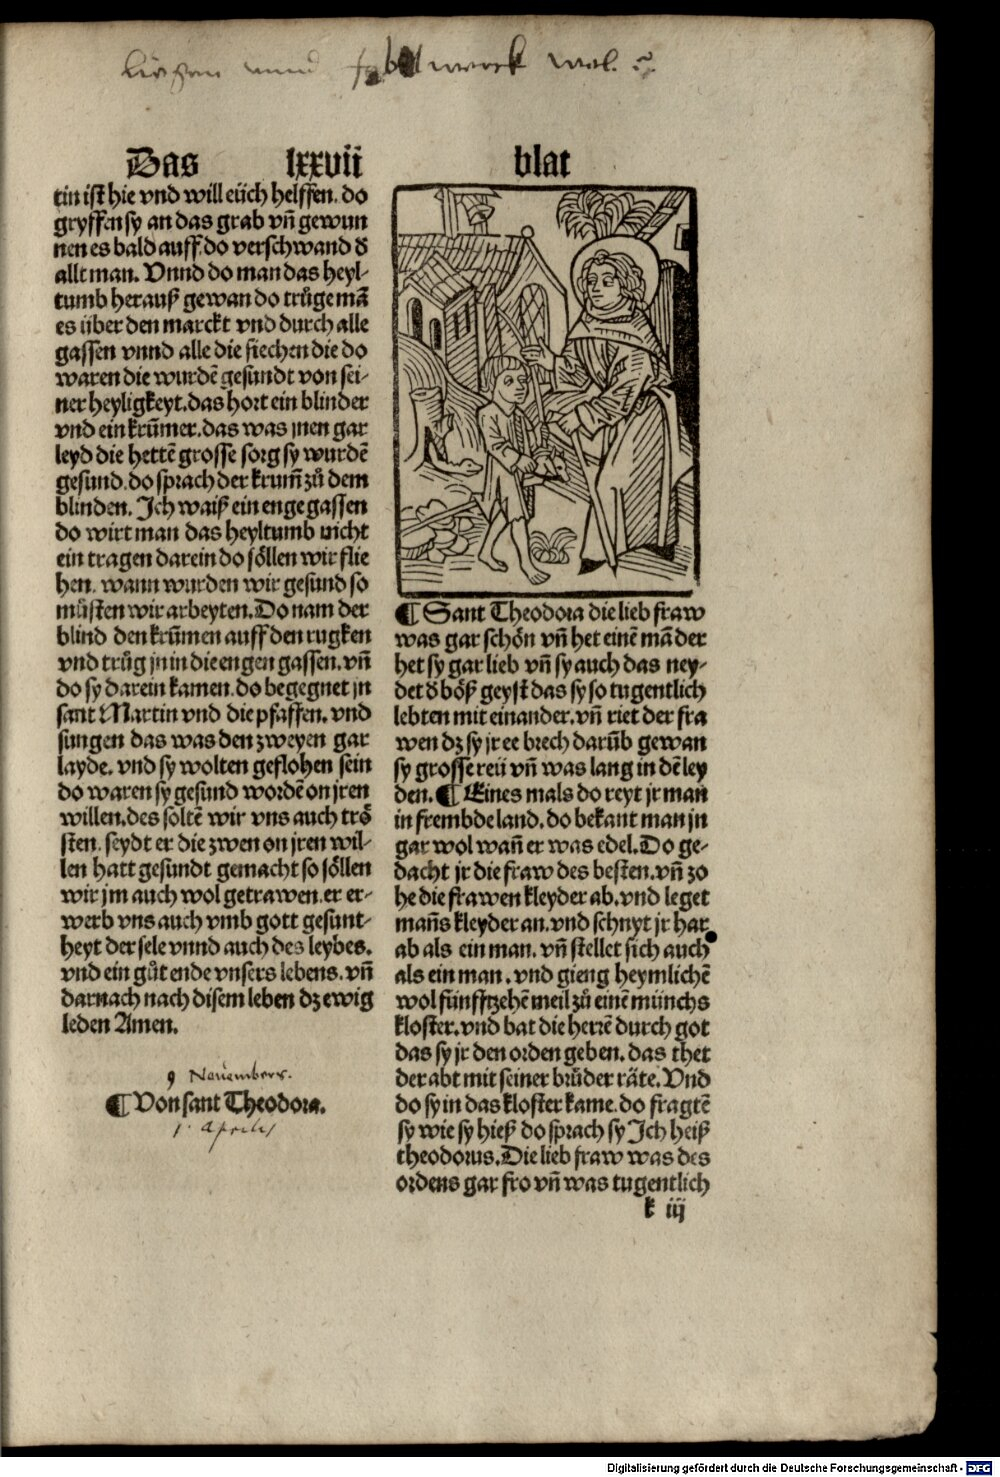 liegen vnnd fabelwerck vol.
Das lxxvii blat
tin ist hie vnd will eüch helffen. do
gryffen sy an das grab vñ gewun
nen es bald auff. do verschwand d̕
allt man. Vnnd do man das heyl-
tumb herauß gewan do trůge mā
es über den marckt vnd durch alle
gassen vnnd alle die siechen die do
waren die wurdē gesundt von sei-
ner heyligkeyt. das hort ein blinder
vnd ein krūmer. das was jnen gar
leyd die hettē grosse sorg sy wurdē
gesund. do sprach der krum̄ zů dem
blinden. Ich waiß ein enge gassen
do wirt man das heyltumb nicht
ein tragen darein do söllen wir flie
hen. wann wurden wir gesund so
můsten wir arbeyten. Do nam der
blind den krūmen auff den rugken
vnd trůg jn in die engen gassen. vñ
do sy darein kamen. do begegnet jn
sant Martin vnd die pfaffen. vnd
sungen das was den zweyen gar
layde. vnd sy wolten geflohen sein
do waren sy gesund wordē on jren
willen. des soltē wir vns auch trö
sten. seydt er die zwen on jren wil-
len hatt gesundt gemacht so söllen
wir jm auch wol getrawen. er er-
werb vns auch vmb gott gesunt-
heyt der sele vnnd auch des leybes.
vnd ein gůt ende vnsers lebens. vñ
darnach nach disem leben dz ewig
leden Amen.
9 Nouembers.
¶ Von sant Theodora.
1. Aprilis
¶ Sant Theodora die lieb fraw
was gar schön vñ het einē mā der
het sy gar lieb vñ sy auch das ney-
det d̕ böß geyst das sy so tugentlich
lebten mit einander. vñ riet der fra
wen dz sy jr ee brech darūb gewan
sy grosse reü vñ was lang in dē ley
den. ¶ Eines mals do reyt jr man
in frembde land. do bekant man jn
gar wol wañ er was edel. Do ge-
dacht jr die fraw des besten. vñ zo
he die frawen kleyder ab. vnd leget
mañs kleyder an. vnd schnyt jr har
ab als ein man. vñ stellet sich auch
als ein man. vnd gieng heymlichē
wol fünfftzehē meil zů einē münchs
kloster. vnd bat die herrē durch got
das sy jr den orden geben. das thet
der abt mit seiner brůder räte. Vnd
do sy in das kloster kame. do fragtē
sy wie sy hieß do sprach sy Ich heiß
theodorus. Die lieb fraw was des
ordens gar fro vñ was tugentlich
k iij
Digitalisierung gefördert durch die Deutsche Forschungsgemeinschaft - DFG